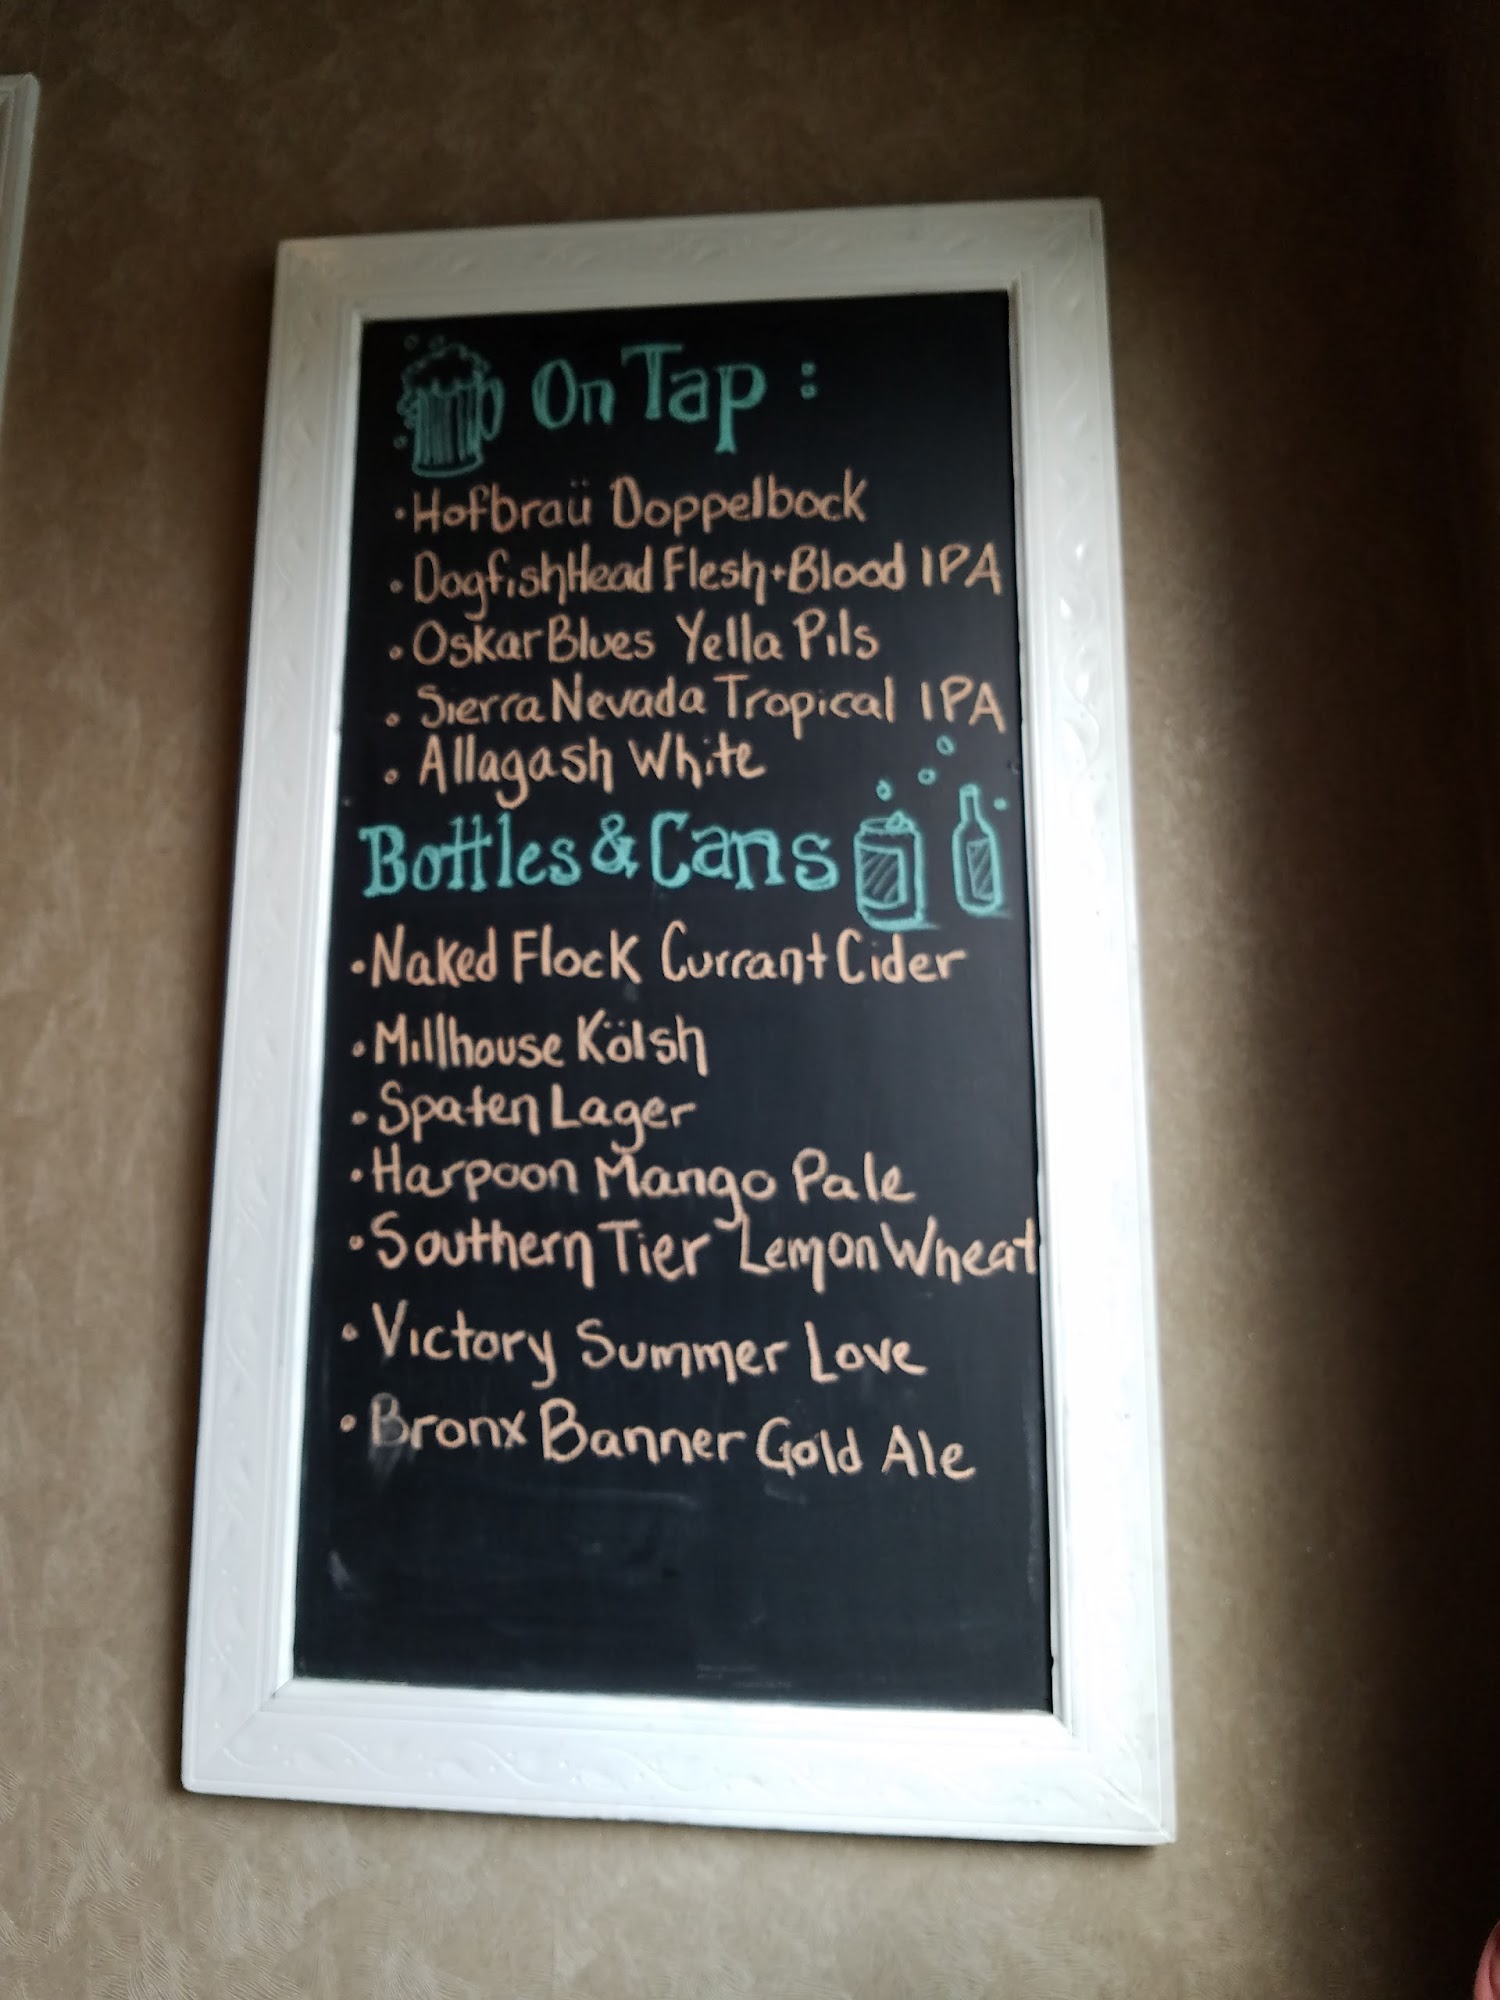 On Tap :
• Hofbraü Doppelbock
• Dogfish Head Flesh + Blood IPA
• Oskar Blues Yella Pils
• Sierra Nevada Tropical IPA
• Allagash White
Bottles & Cans
• Naked Flock Currant Cider
• Millhouse Kölsh
• Spaten Lager
• Harpoon Mango Pale
• Southern Tier Lemon Wheat
• Victory Summer Love
• Bronx Banner Gold Ale